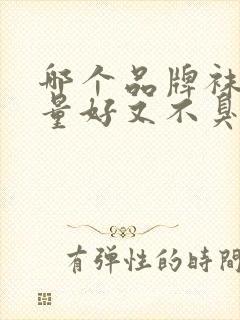 哪个品牌袜
量好又不臭
有弹性的時間